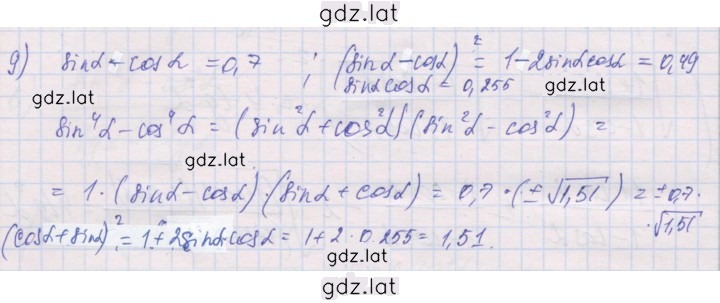 gdz.lat
9) sinα - cosα = 0,7 ; (sinα - cosα)² = 1 - 2sinαcosα = 0,49
sinαcosα = 0,255
gdz.lat gdz.lat
sin⁴α - cos⁴α = (sin²α + cos²α)(sin²α - cos²α) =
gdz.lat
= 1·(sinα - cosα)·(sinα + cosα) = 0,7·(±√1,51) = ±0,7·
·√1,51
(cosα + sinα)² = 1 + 2sinαcosα = 1 + 2·0.255 = 1,51.
gdz.lat